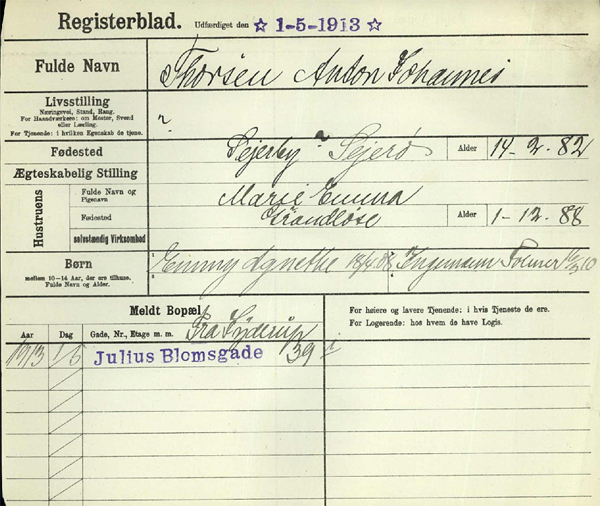 Registerblad. Udfærdiget den ☆ 1-5-1913 ☆
Fulde Navn Thorsen Anton Johannes
Livsstilling
Næringsvej, Stand, Rang.
For Haandværkere: om Mester, Svend
eller Lærling.
For Tjenende: i hvilken Egenskab de tjene.
Fødested Sejerby Sejerø Alder 14-2-82
Ægteskabelig Stilling
Hustruens
Fulde Navn og
Pigenavn
Marie Emma
Fødested Grandløse Alder 1-12-88
selvstændig Virksomhed
Børn
mellem 10-14 Aar, der ere tilhuse.
Fulde Navn og Alder.
1 Emmy Agnethe 18/4 08 2 Ingemann
3 4
Meldt Bopæl Fra Hyderup
For høiere og lavere Tjenende: i hvis Tjeneste de ere.
For Logerende: hos hvem de have Logis.
Aar Dag Gade, Nr., Etage m. m.
1913 1/5 Julius Blomsgade 39 i